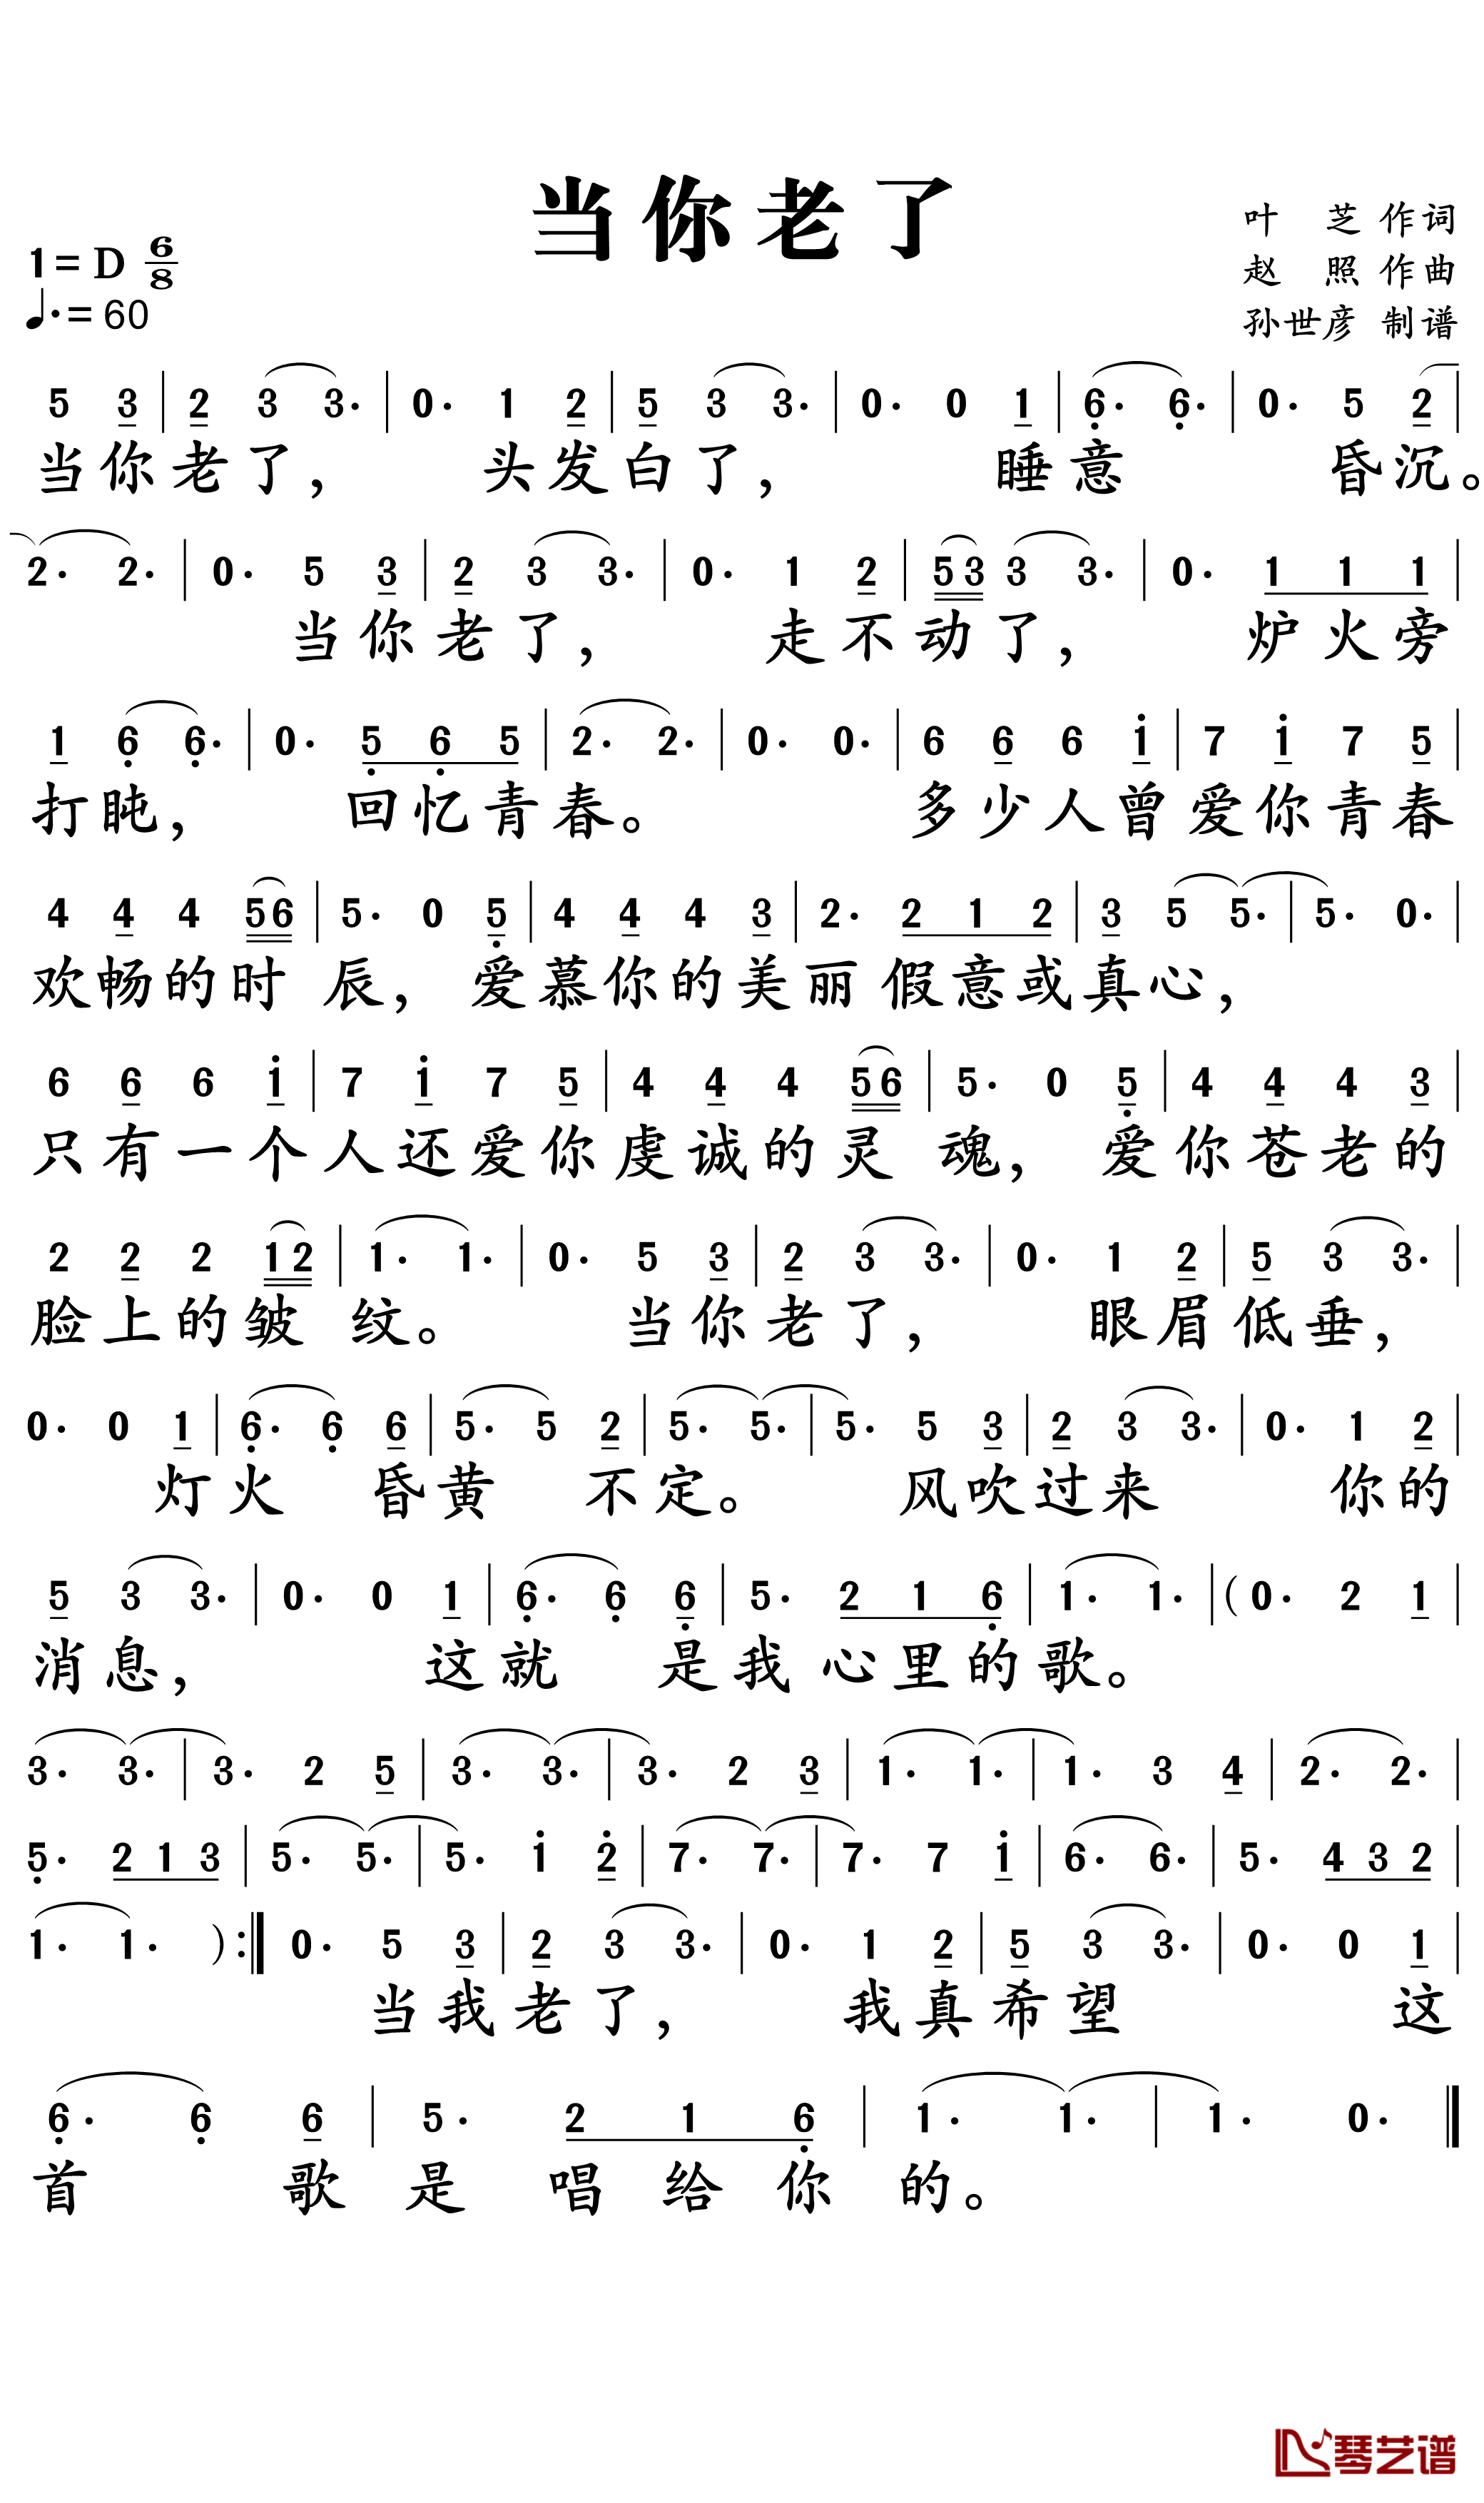 当你老了
1= D 6/8
♩. = 60
叶 芝 作词
赵 照 作曲
孙世彦 制谱
5 3 | 2 3 3· | 0· 1 2 | 5 3 3· | 0· 0 1 | 6· 6· | 0· 5 2 |
当你老了, 头发白了, 睡意 昏沉。
2· 2· | 0· 5 3 | 2 3 3· | 0· 1 2 | 53 3 3· | 0· 1 1 1 |
当你老了, 走不动了, 炉火旁
1 6 6· | 0· 5 6 5 | 2· 2· | 0· 0· | 6 6 6 i | 7 i 7 5 |
打盹, 回忆青春。 多少人曾爱你青春
4 4 4 56 | 5· 0 5 | 4 4 4 3 | 2· 2 1 2 | 3 5 5· | 5· 0· |
欢畅的时 辰, 爱慕你的美丽 假意或真心,
6 6 6 i | 7 i 7 5 | 4 4 4 56 | 5· 0 5 | 4 4 4 3 |
只有一个人还爱你虔诚的灵 魂, 爱你苍老的
2 2 2 12 | 1· 1· | 0· 5 3 | 2 3 3· | 0· 1 2 | 5 3 3· |
脸上的皱 纹。 当你老了, 眼眉低垂,
0· 0 1 | 6· 6 6 | 5· 5 2 | 5· 5· | 5· 5 3 | 2 3 3· | 0· 1 2 |
灯火 昏黄 不定。 风吹过来 你的
5 3 3· | 0· 0 1 | 6· 6 6 | 5· 2 1 6 | 1· 1· | (0· 2 1 |
消息, 这就 是我 心里的歌。
3· 3· | 3· 2 5 | 3· 3· | 3· 2 3 | 1· 1· | 1· 3 4 | 2· 2· |
5· 2 1 3 | 5· 5· | 5· i 2 | 7· 7· | 7· 7 i | 6· 6· | 5· 4 3 2 |
1· 1· ) :‖ 0· 5 3 | 2 3 3· | 0· 1 2 | 5 3 3· | 0· 0 1 |
当我老了, 我真希望 这
6· 6 6 | 5· 2 1 6 | 1· 1· | 1· 0· ‖
首 歌 是 唱 给 你 的。
琴艺谱